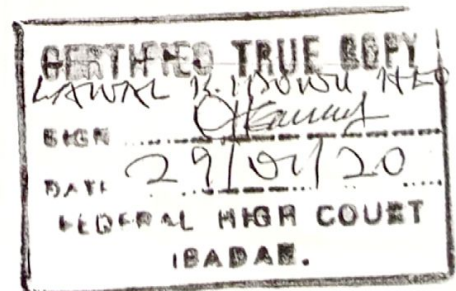 CERTIFIED TRUE COPY
LAWAL
SIGN
DATE 29/01/20
FEDERAL HIGH COURT
IBADAN.